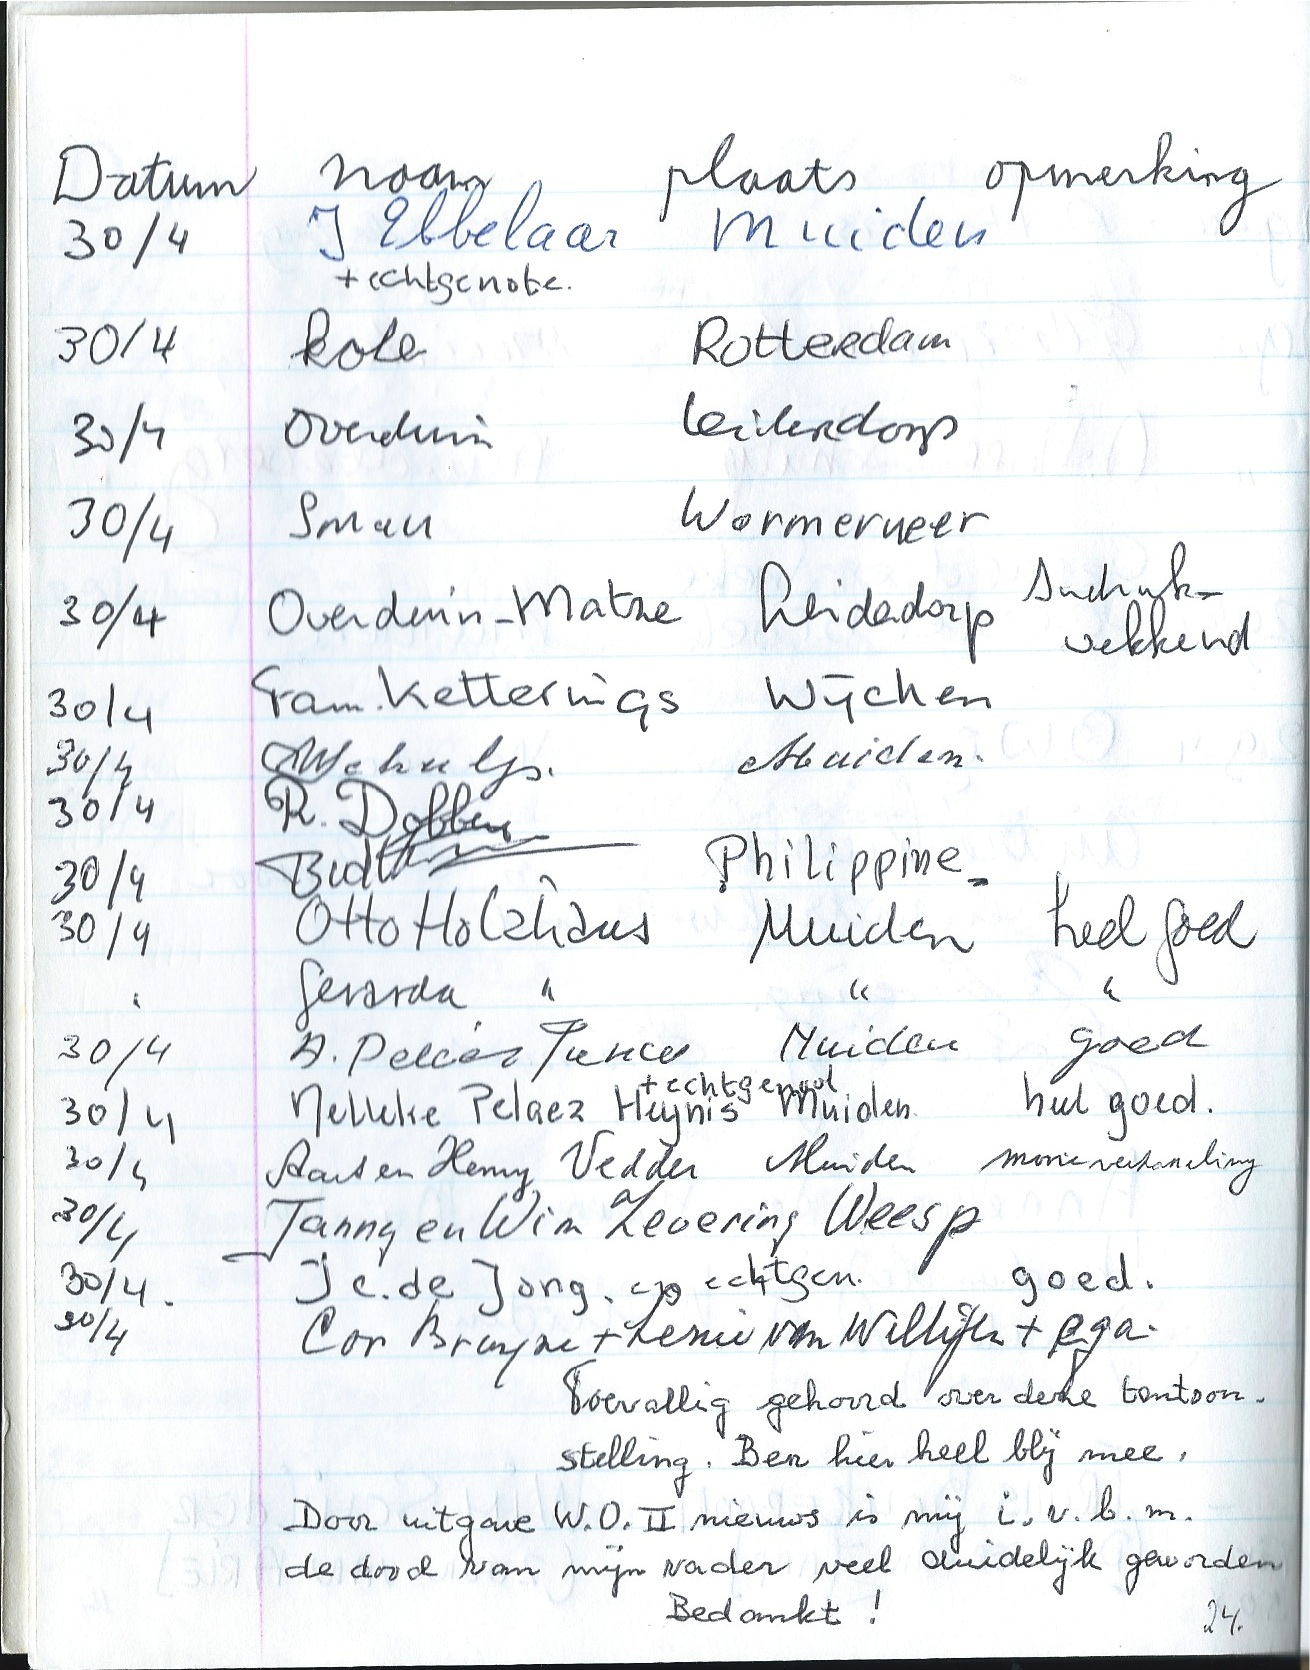 Datum naam plaats opmerking
30/4 J Ebbelaar Muiden
+ echtgenote.
30/4 Kole Rotterdam
30/4 Overduin Leiderdorp
30/4 Smau Wormerveer
30/4 Overduin-Matze Leiderdorp Indruk-
wekkend
30/4 Fam. Ketterings Wijchen
30/4 Muiden.
30/4 R. Dobben
30/4 Philippine
30/4 Otto Holzhaus Muiden heel goed
" Gerarda " " "
30/4 A. Pelaez Muiden goed
+ echtgenoot
30/4 Nelleke Pelaez Heynis Muiden. heel goed.
30/4 Aart en Henny Vedder Muiden
30/4 Janny en Wim Levering Weesp
30/4. J C. de Jong. en echtgen. goed.
30/4 Cor Bruyne + Lenie van Willigen + ega.
Toevallig gehoord over deze tentoon-
stelling. Ben hier heel blij mee.
Door uitgave W.O. II nieuws is mij i.v.b.m.
de dood van mijn vader veel duidelijk geworden
Bedankt !
24.